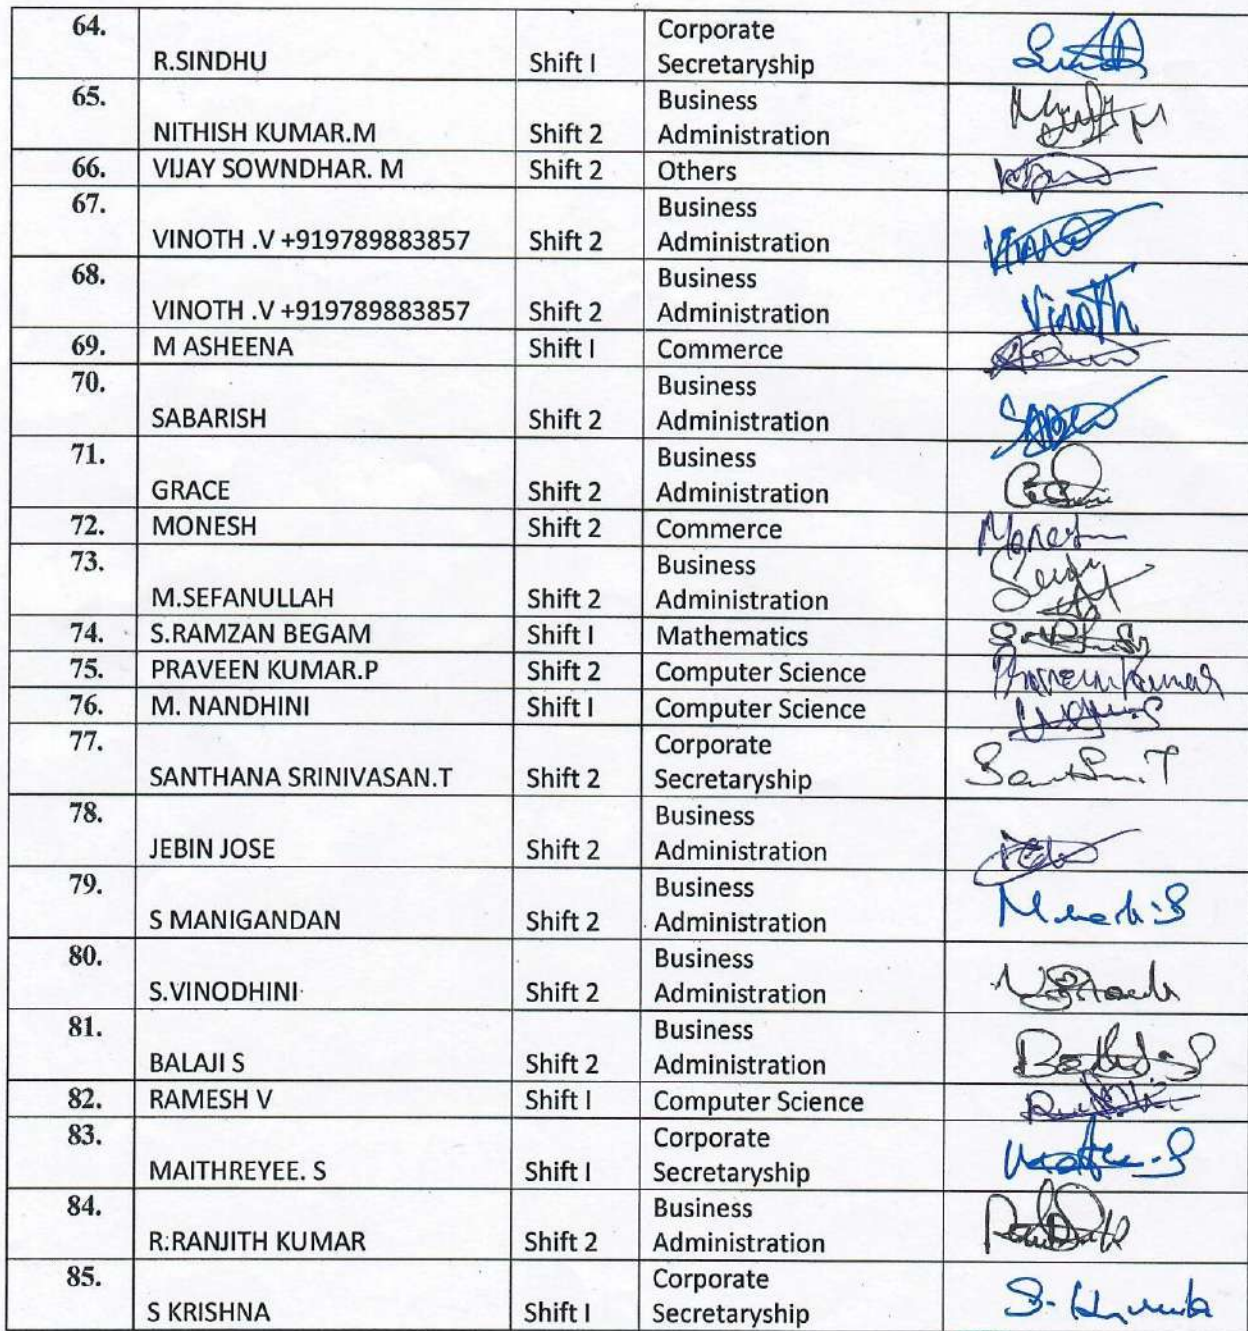 64. R.SINDHU Shift I Corporate Secretaryship
65. NITHISH KUMAR.M Shift 2 Business Administration
66. VIJAY SOWNDHAR. M Shift 2 Others
67. VINOTH .V +919789883857 Shift 2 Business Administration
68. VINOTH .V +919789883857 Shift 2 Business Administration Vinoth
69. M ASHEENA Shift I Commerce
70. SABARISH Shift 2 Business Administration
71. GRACE Shift 2 Business Administration
72. MONESH Shift 2 Commerce
73. M.SEFANULLAH Shift 2 Business Administration
74. S.RAMZAN BEGAM Shift I Mathematics
75. PRAVEEN KUMAR.P Shift 2 Computer Science
76. M. NANDHINI Shift I Computer Science
77. SANTHANA SRINIVASAN.T Shift 2 Corporate Secretaryship
78. JEBIN JOSE Shift 2 Business Administration
79. S MANIGANDAN Shift 2 Business Administration
80. S.VINODHINI Shift 2 Business Administration
81. BALAJI S Shift 2 Business Administration
82. RAMESH V Shift I Computer Science
83. MAITHREYEE. S Shift I Corporate Secretaryship
84. R.RANJITH KUMAR Shift 2 Business Administration
85. S KRISHNA Shift I Corporate Secretaryship